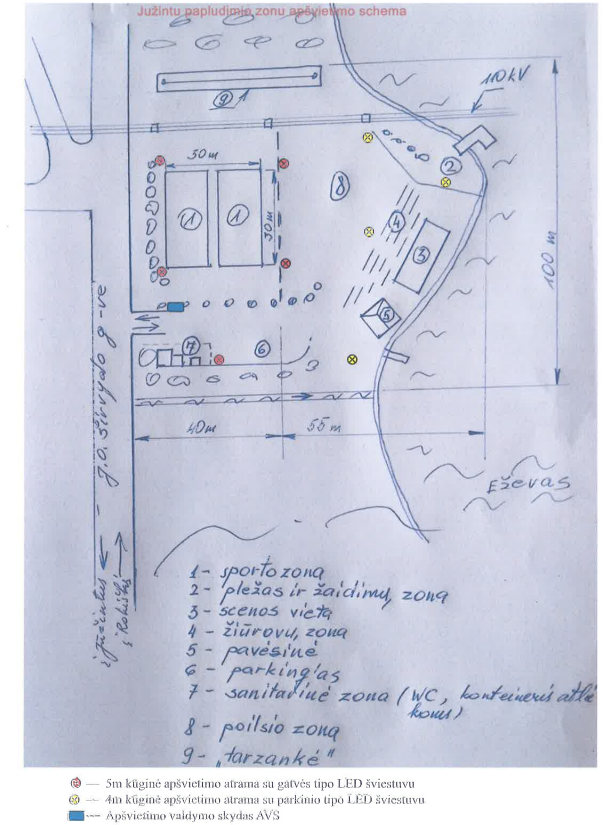 Južintu papludimio zonu apšvietimo schema
110 kV
9
30 m
2
8
1
1
4
30 m
3
100 m
5
7
6
40 m
55 m
J.O. Širvydo g-vė
Eževas
į Južintus
į Rokiškį
1 - sporto zona
2 - pležas ir žaidimų zona
3 - scenos vieta
4 - žiūrovų zona
5 - pavėsinė
6 - parking'as
7 - sanitarinė zona (WC, konteineris atlie
koms)
8 - poilsio zona
9 - „tarzankė"
5m kūginė apšvietimo atrama su gatvės tipo LED šviestuvu
4m kūginė apšvietimo atrama su parkinio tipo LED šviestuvu
Apšvietimo valdymo skydas AVS